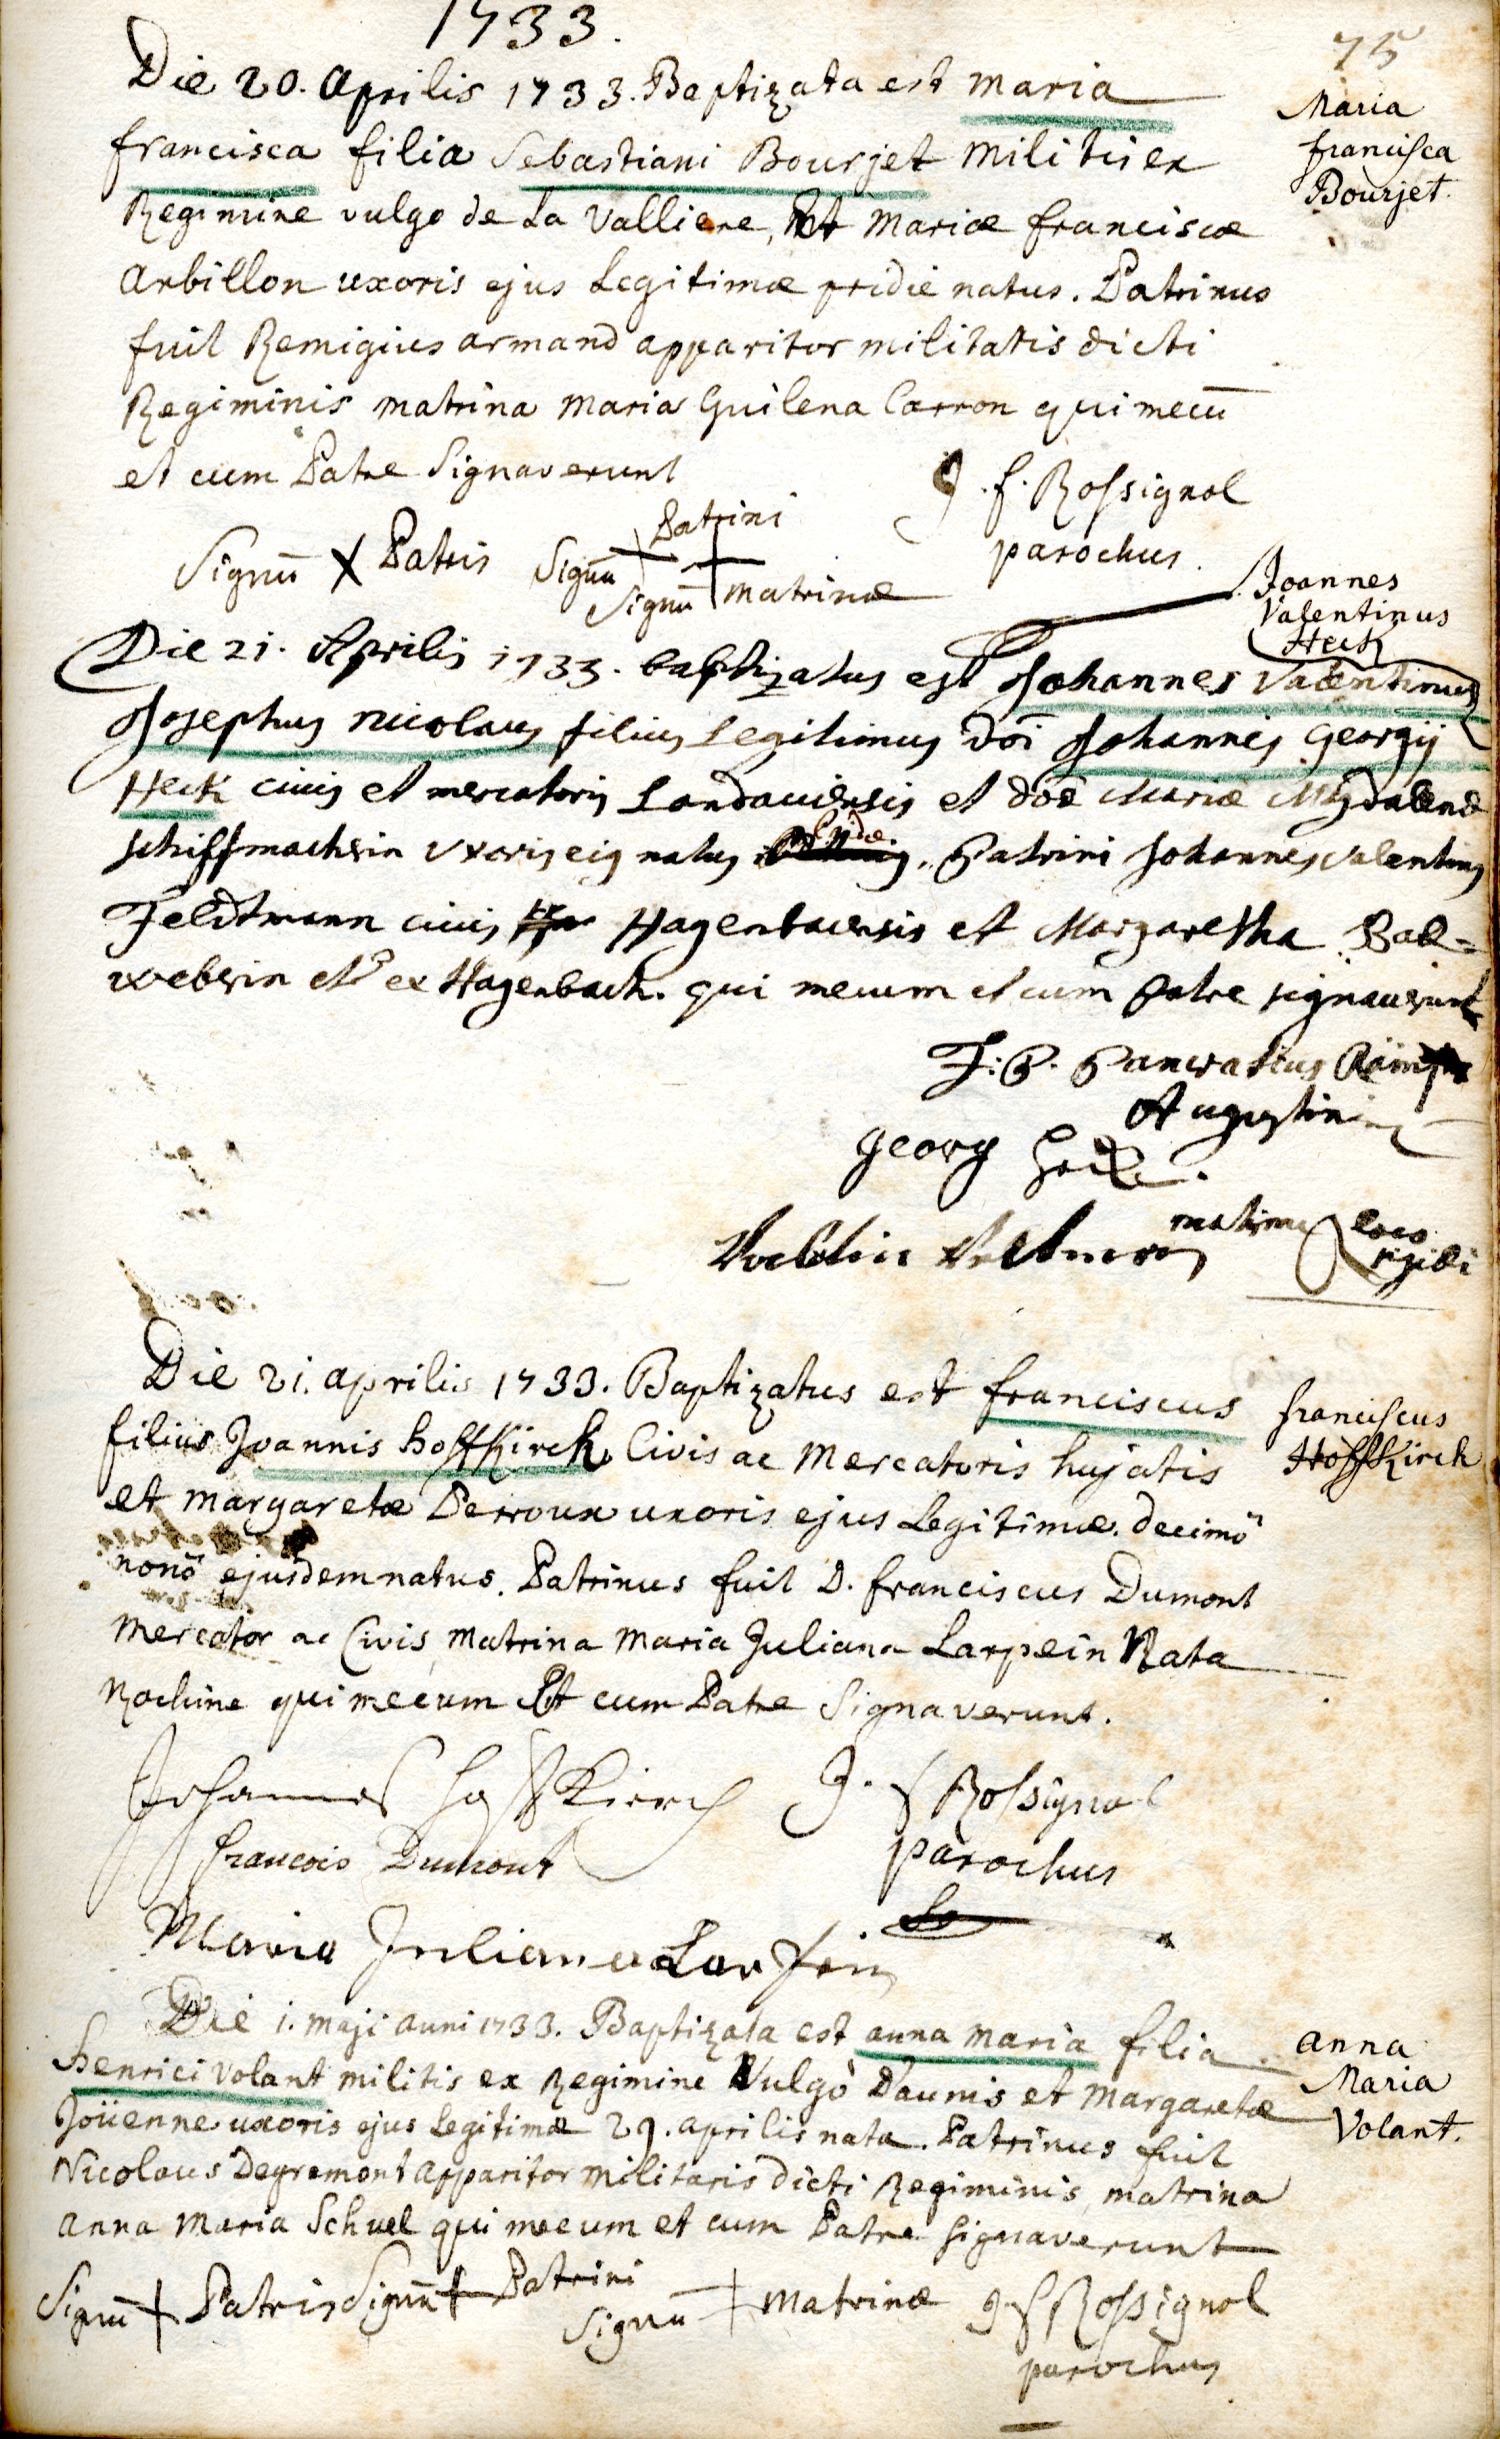 1733.
75
Die 20. Aprilis 1733. Baptizata est Maria
Maria
francisca
Bourjet.
francisca filia Sebastiani Bourjet militis ex
Regimine vulgo de La Valliere, Et Mariæ franciscæ
Arbillon uxoris ejus Legitimæ pridie natus. Patrinus
fuit Remigius armand apparitor militatis dicti
Regiminis matrina Maria Guilena Carron qui mecū
et cum Patre Signaverunt
J. f. Rossignol
parochus.
Signū X Patris Signū + Patrini
Signū + matrinæ
Joannes
Valentinus
Heck
Die 21. Aprilis 1733. baptizatus est Johannes Valentinus
Josephus Nicolaus filius Legitimus doī Johannis Georgij
Heck civis et mercatoris Landaviensis et doæ Mariæ Magdalenæ
schiffmacherin Uxoris eius natus pridie. Patrini Johannes Valentinus
Feldtmann civis Hagenbacensis et Margaretha Bad=
weberin et ex Hagenbach. qui mecum et cum Patre signaverunt
F: P. Pancratius
Augustin
Georg Heck.
matrinæ loco
sigilli
Die 21. aprilis 1733. Baptizatus est franciscus
franciscus
Hoffkirch
filius Joannis hoffKirch Civis ac Mercatoris hujatis
et margaretæ Perroux uxoris ejus Legitimæ. decimō
nonō ejusdem natus. Patrinus fuit D. franciscus Dumont
Mercator ac Civis, matrina maria Juliana Larpein Nata
Rochine qui mecum Et cum Patre Signaverunt.
Johannes HoffKirch
J. f Rossignol
parochus
francois Dumont
Maria Juliana Larpein
Die 1. maji anni 1733. Baptizata est anna maria filia
anna
Maria
Volant.
henrici Volant militis ex Regimine Vulgò Daunis et Margaretæ
Joüenne uxoris ejus Legitimæ 29. aprilis nata. Patrinus fuit
Nicolaus Degremont apparitor militaris dicti Regiminis, matrina
anna maria Schuel qui mecum et cum Patre signaverunt
Signū + Patris Signū + Patrini
Signū + matrinæ
J f Rossignol
parochus